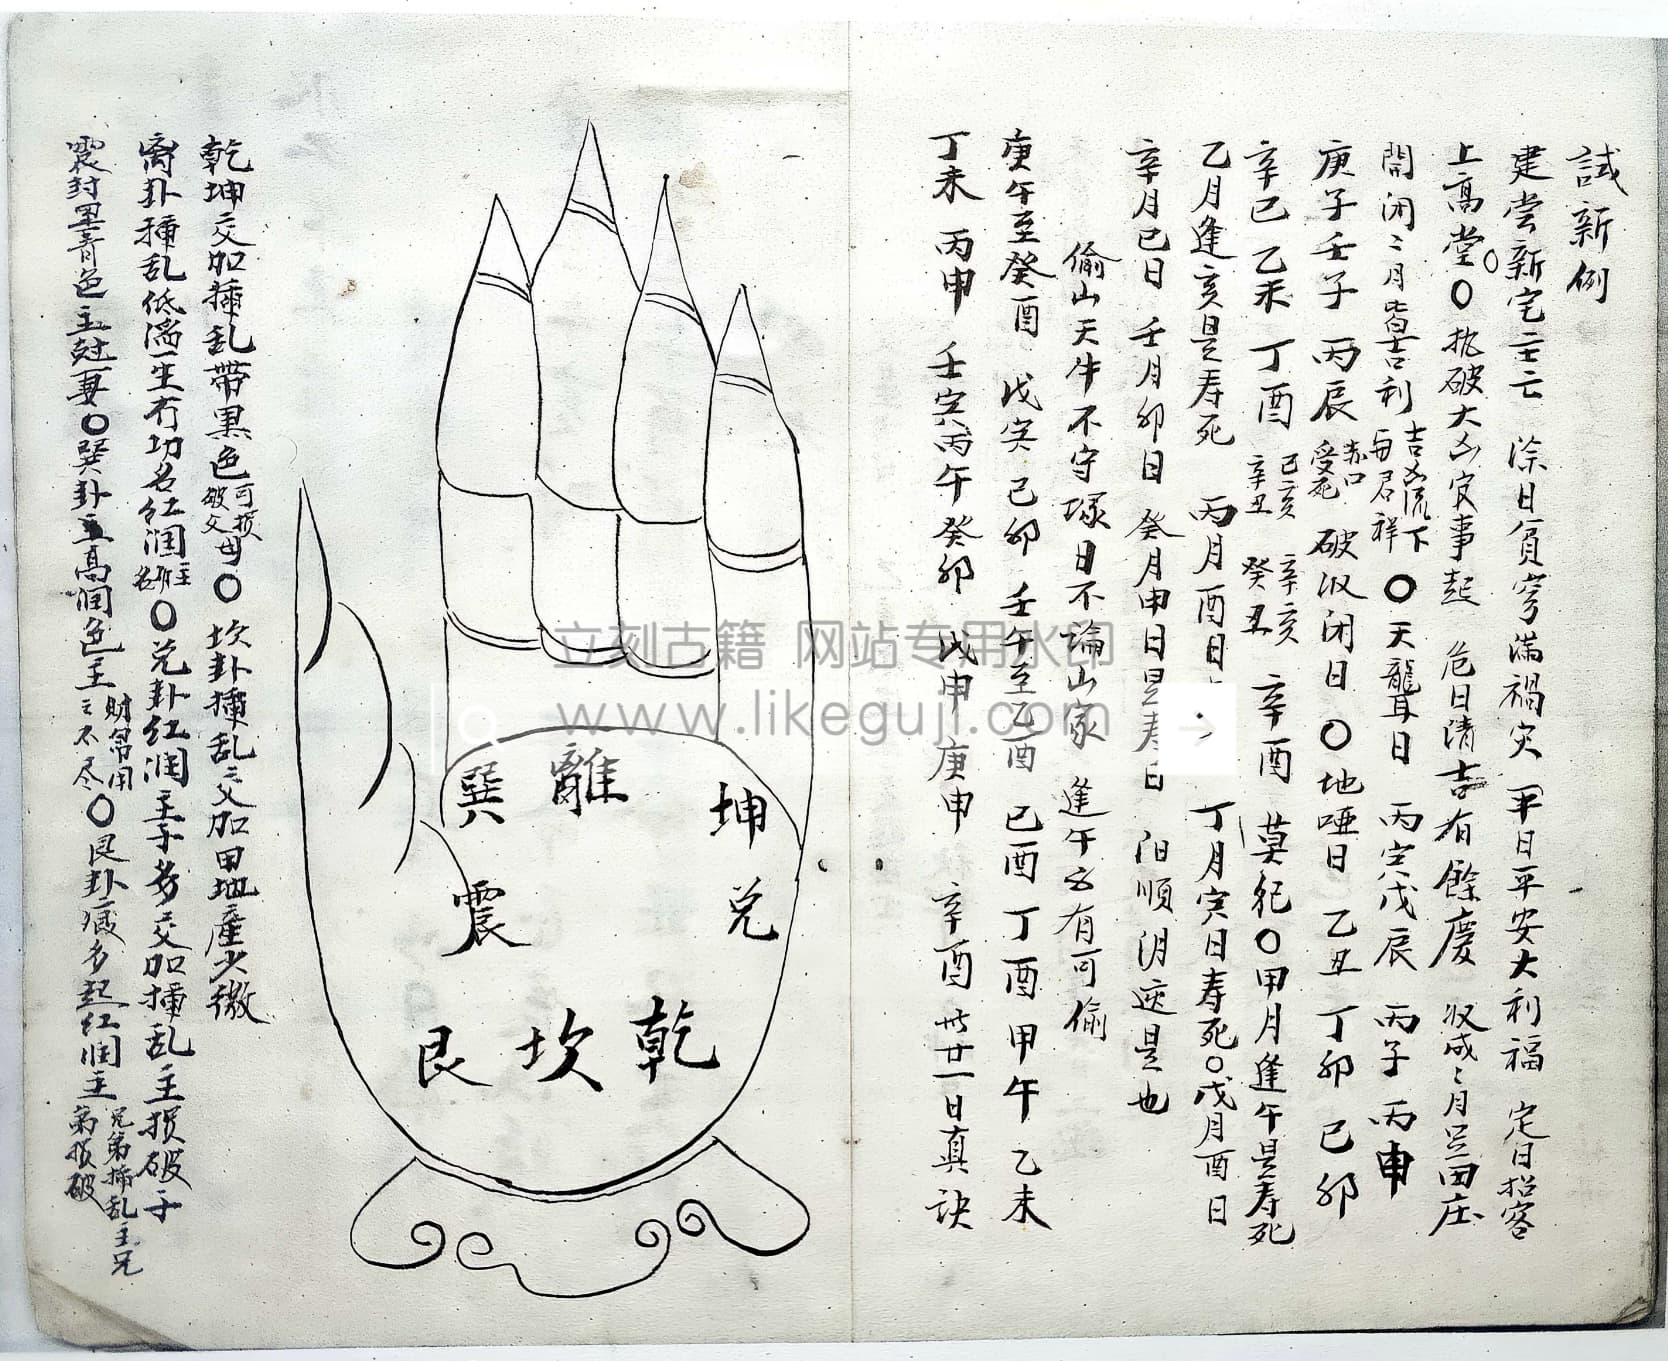 試新例
建尝新宅主亡 滁日貧窮滿禍灾 平日平安大利福 定日招客
上高堂〇 执破大凶官事起 危日清吉有餘慶 収成〻月呈田庄
開闭〻月皆吉利 吉凶流下 与君祥 〇天聾日 丙寅戊辰 丙子丙申
庚子壬子 丙辰 赤口 受死 破収闭日 〇地啞日 乙丑 丁卯 己卯
辛巳 乙未 丁酉 己亥 辛丑 辛亥 癸丑 辛酉 莫犯〇甲月逢午是寿死
乙月逢亥是寿死 丙月酉日 丁月寅日寿死〇戊月酉日
辛月巳日 壬月卯日 癸月申日是寿日 順 是也
偷山天牛不守塚日不論山家 逢午 有可偷
庚午至癸酉 戊寅己卯 壬午至乙酉 己酉丁酉甲午乙未
丁未 丙申 壬寅丙午癸卯 戊申 庚申 辛酉 廿一日真訣
巽 離 坤
震 兑
艮 坎 乾
乾坤交加插乱帶黑色 可损 破父母〇 坎卦插乱〻交加田地産少徵
离卦插乱低濡一生冇功名红润 主 名〇兑卦红润主子 交加插乱主损破子
震封黑青色主尅妻〇巽卦主高润色主 財帛用 〻不尽〇艮卦痕多起红润主 兄弟插乱主兄 弟损破
立刻古籍 网站专用水印
www.likeguji.com